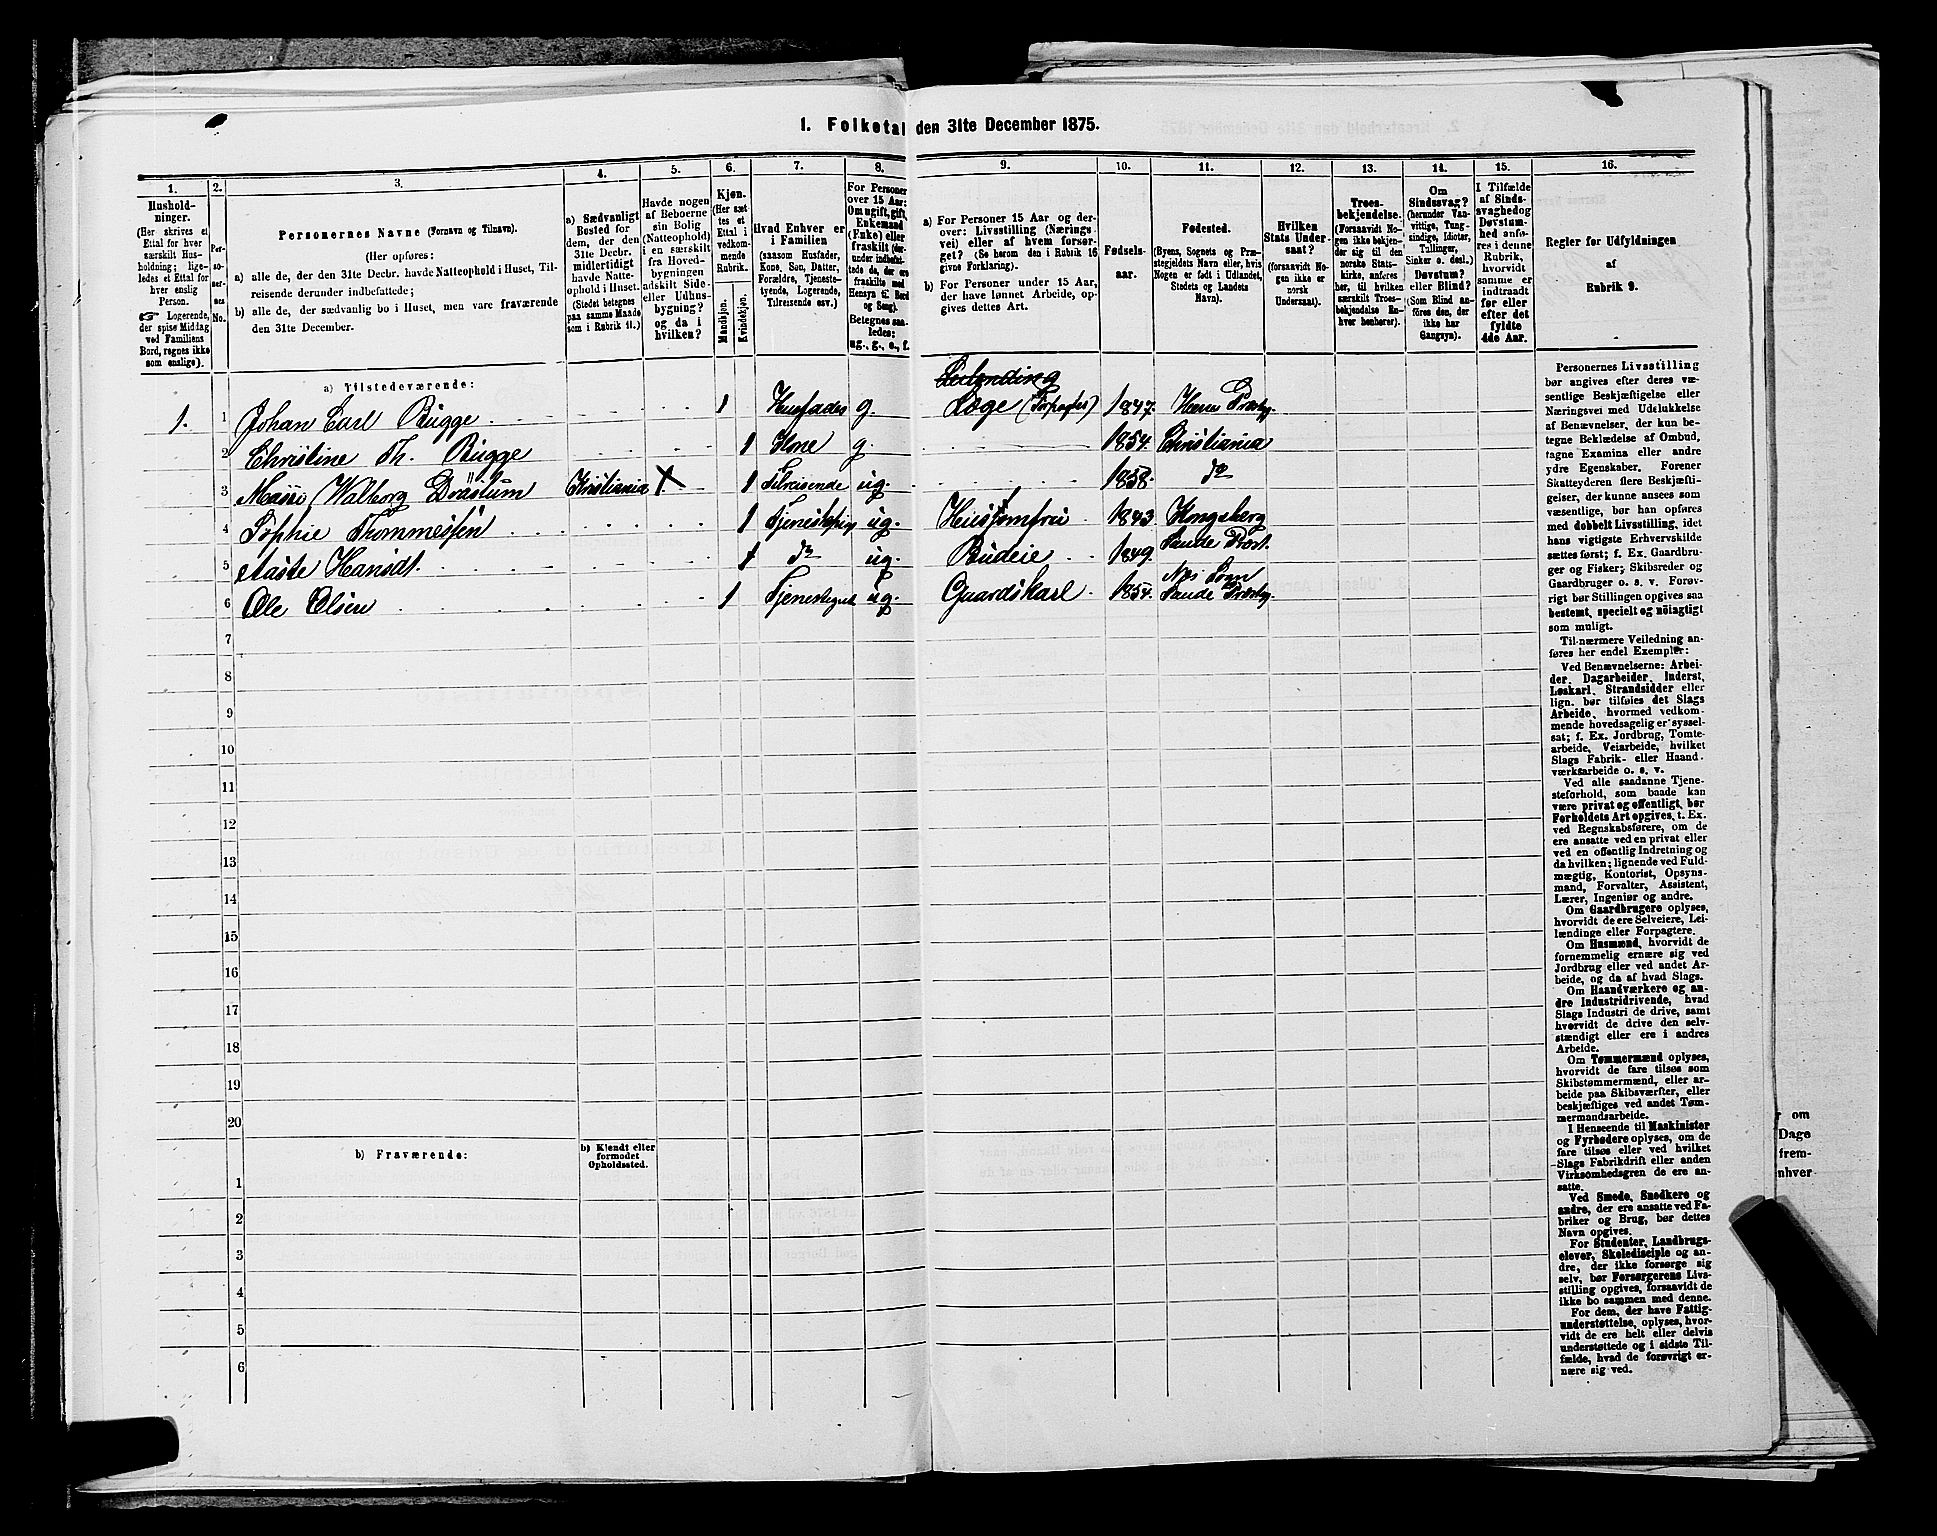 1. Folketal den 31te December 1875.
1. 2. 3. 4. 5. 6. 7. 8. 9. 10. 11. 12. 13. 14. 15. 16.
Hushold-
ninger.
(Her skrives et
Ettal for hver
særskilt Hus-
holdning; lige-
ledes et Ettal for
hver enslig
Person.
☞ Logerende,
der spise Middag
ved Familiens
Bord, regnes ikke
som enslige).
Per-
soner-
nes
No.
Personernes Navne (Fornavn og Tilnavn).
(Her opføres:
a) alle de, der den 31te Decbr. havde Natteophold i Huset, Til-
reisende derunder indbefattede;
b) alle de, der sædvanlig bo i Huset, men vare fraværende
den 31te December.
a) Sædvanligt
Bosted for
dem, der den
31te Decbr.
midlertidigt
havde Natte-
ophold i Huset.
(Stedet betegnes
paa samme Maade
som i Rubrik 11.)
Havde nogen
af Beboerne
sin Bolig
(Natteophold)
i en særskilt
fra Hoved-
bygningen
adskilt Side-
eller Udhus-
bygning?
og da i
hvilken?
Kjøn.
(Her sæt-
tes et
Ettal i
vedkom-
mende
Rubrik.
Mandkjøn.
Kvindekjøn.
Hvad Enhver er
i Familien
(saasom Husfader,
Kone, Søn, Datter,
Forældre, Tjeneste-
tyende, Logerende,
Tilreisende osv.)
For Personer
over 15 Aar:
Om ugift, gift,
Enkemand
(Enke) eller
fraskilt (der-
under indbefat-
tede de, der ere
fraskilte med
Hensyn til Bord
og Seng).
Betegnes saa-
ledes:
ug., g., e., f.
a) For Personer 15 Aar og der-
over: Livsstilling (Nærings-
vei) eller af hvem forsør-
get? (Se herom den i Rubrik 16
givne Forklaring).
b) For Personer under 15 Aar,
der have lønnet Arbeide, op-
gives dettes Art.
Fødsels-
aar.
Fødested.
(Byens, Sognets og Præ-
stegjeldets Navn eller, hvis
Nogen er født i Udlandet,
Stedets og Landets
Navn).
Hvilken
Stats Under-
saat?
(forsaavidt No-
gen ikke er
norsk
Undersaat).
Troes-
bekjendelse.
(Forsaavidt No-
gen ikke bekjen-
der sig til den
norske Stats-
kirke, anføres
her, til hvilken
særskilt Troes-
bekjendelse En-
hver henhører).
Om
Sindssvag?
(herunder Van-
vittige, Tung-
sindige, Idioter,
Tullinger,
Sinker o. desl.)
Døvstum?
eller Blind?
(Som Blind an-
føres den, der
ikke har
Gangsyn).
I Tilfælde
af Sinds-
svaghed og
Døvstum-
hed anfø-
res i denne
Rubrik,
hvorvidt
samme er
indtraadt
før eller
efter det
fyldte
4de Aar.
Regler for Udfyldningen
af
Rubrik 9.
a) Tilstedeværende:
Leilending
1. 1 Johan Carl Bugge 1 Husfader g. Læge (Forpagter) 1847. Præstg.
2 Christine Th. Bugge 1 Kone g. 1854. Christiania
3 Walborg Kristiania X 1 Tilreisende ug. 1858. do
4 Sophie Thommessen 1 ug. Husjomfru 1843 Kongsberg
5 Aaste Hansdt. 1 do ug. Budeie 1849. Sande Præst.
Nes Sogn
6 Ole Olsen 1 ug. Gaardskarl 1854. Sande Præstg.
7
8
9
10
11
12
13
14
15
16
17
18
19
20
b) Fraværende:
b) Kjendt eller
formodet
Opholdssted.
1
2
3
4
5
6
Personernes Livsstilling
bør angives efter deres væ-
sentlige Beskjæftigelse eller
Næringsvei med Udelukkelse
af Benævnelser, der kun be-
tegne Beklædelse af Ombud,
tagne Examina eller andre
ydre Egenskaber. Forener
Skatteyderen flere Beskjæfti-
gelser, der kunne ansees som
væsentlige, bør han opføres
med dobbelt Livsstilling, idet
hans vigtigste Erhvervskilde
sættes først; f. Ex. Gaardbru-
ger og Fisker; Skibsreder og
Gaardbruger o. s. v. Forøv-
rigt bør Stillingen opgives saa
bestemt, specielt og nøiagtigt
som muligt.
Til nærmere Veiledning an-
føres her endel Exempler:
Ved Benævnelserne: Arbei-
der, Dagarbeider, Inderst,
Løskarl, Strandsidder eller
lign. bør tilføies det Slags
Arbeide, hvormed vedkom-
mende hovedsagelig er syssel-
sat; f. Ex. Jordbrug, Tomte-
arbeide, Veiarbeide, hvilket
Slags Fabrik- eller Haand-
værksarbeide o. s. v.
Ved alle saadanne Tjene-
steforhold, som baade kan
være privat og offentligt, bør
Forholdets Art opgives, t. Ex.
ved Regnskabsførere, om de
ere ansatte ved en privat eller
ved en offentlig Indretning og
da hvilken; lignende ved Fuld-
mægtig, Kontorist, Opsyns-
mand, Forvalter, Assistent,
Lærer, Ingeniør og andre.
Om Gaardbrugere oplyses,
hvorvidt de ere Selveiere, Lei-
lændinge eller Forpagtere.
Om Husmænd, hvorvidt de
fornemmelig ernære sig ved
Jordbrug eller ved andet Ar-
beide, og da af hvad Slags.
Om Haandværkere og an-
dre Industridrivende, hvad
Slags Industri de drive, samt
hvorvidt de drive den selv-
stændigt eller ere i andres
Arbeide.
Om Tømmermænd oplyses,
hvorvidt de fare tilsøs som
Skibstømmermænd, eller ar-
beide paa Skibsværfter, eller
beskjæftiges ved andet Tøm-
mermandsarbeide.
I Henseende til Maskinister
og Fyrbødere oplyses, om de
fare tilsøs eller ved hvilket
Slags Fabrikdrift eller anden
Virksomhedsgren de ere an-
satte.
Ved Smede, Snedkere og
andre, der ere ansatte ved Fa-
briker og Brug, bør dettes
Navn opgives.
For Studenter, Landbrugs-
elever, Skoledisciple og an-
dre, der ikke forsørge sig
selv, bør Forsørgerens Livs-
stilling opgives, forsaavidt de
ikke bo sammen med denne.
For dem, der have Fattig-
understøttelse, oplyses, hvor-
vidt de ere helt eller delvis
understøttede og i sidste Til-
fælde, hvad de forøvrigt er-
nære sig ved.
r om
Dage
frem-
nhver